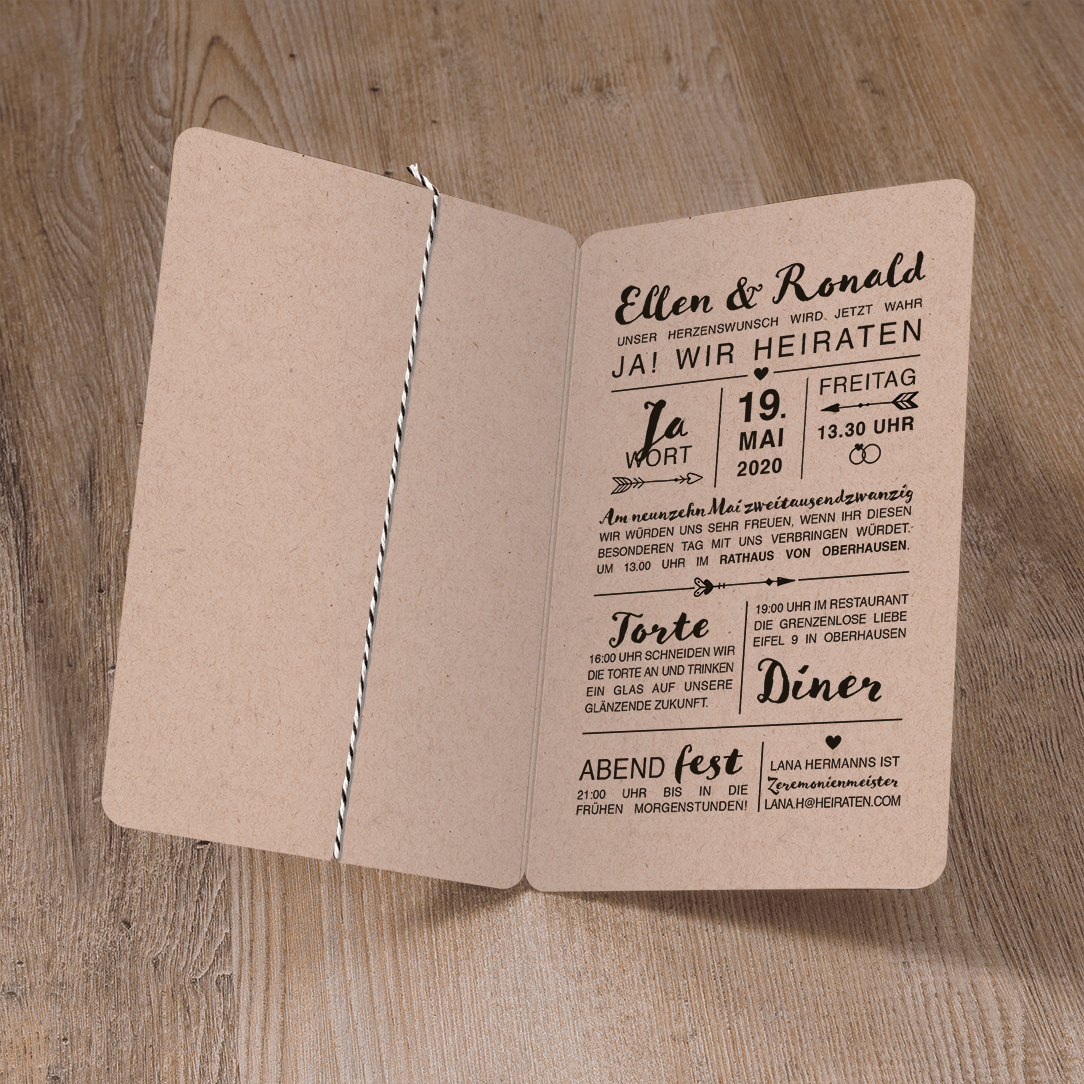 Ellen & Ronald
UNSER HERZENSWUNSCH WIRD JETZT WAHR
JA! WIR HEIRATEN
Ja
WORT
19.
MAI
2020
FREITAG
13.30 UHR
Am neunzehn Mai zweitausendzwanzig
WIR WÜRDEN UNS SEHR FREUEN, WENN IHR DIESEN
BESONDEREN TAG MIT UNS VERBRINGEN WÜRDET.
UM 13.00 UHR IM RATHAUS VON OBERHAUSEN.
Torte
16:00 UHR SCHNEIDEN WIR
DIE TORTE AN UND TRINKEN
EIN GLAS AUF UNSERE
GLÄNZENDE ZUKUNFT.
19:00 UHR IM RESTAURANT
DIE GRENZENLOSE LIEBE
EIFEL 9 IN OBERHAUSEN
Diner
ABEND fest
21:00 UHR BIS IN DIE
FRÜHEN MORGENSTUNDEN!
LANA HERMANNS IST
Zeremonienmeister
LANA.H@HEIRATEN.COM